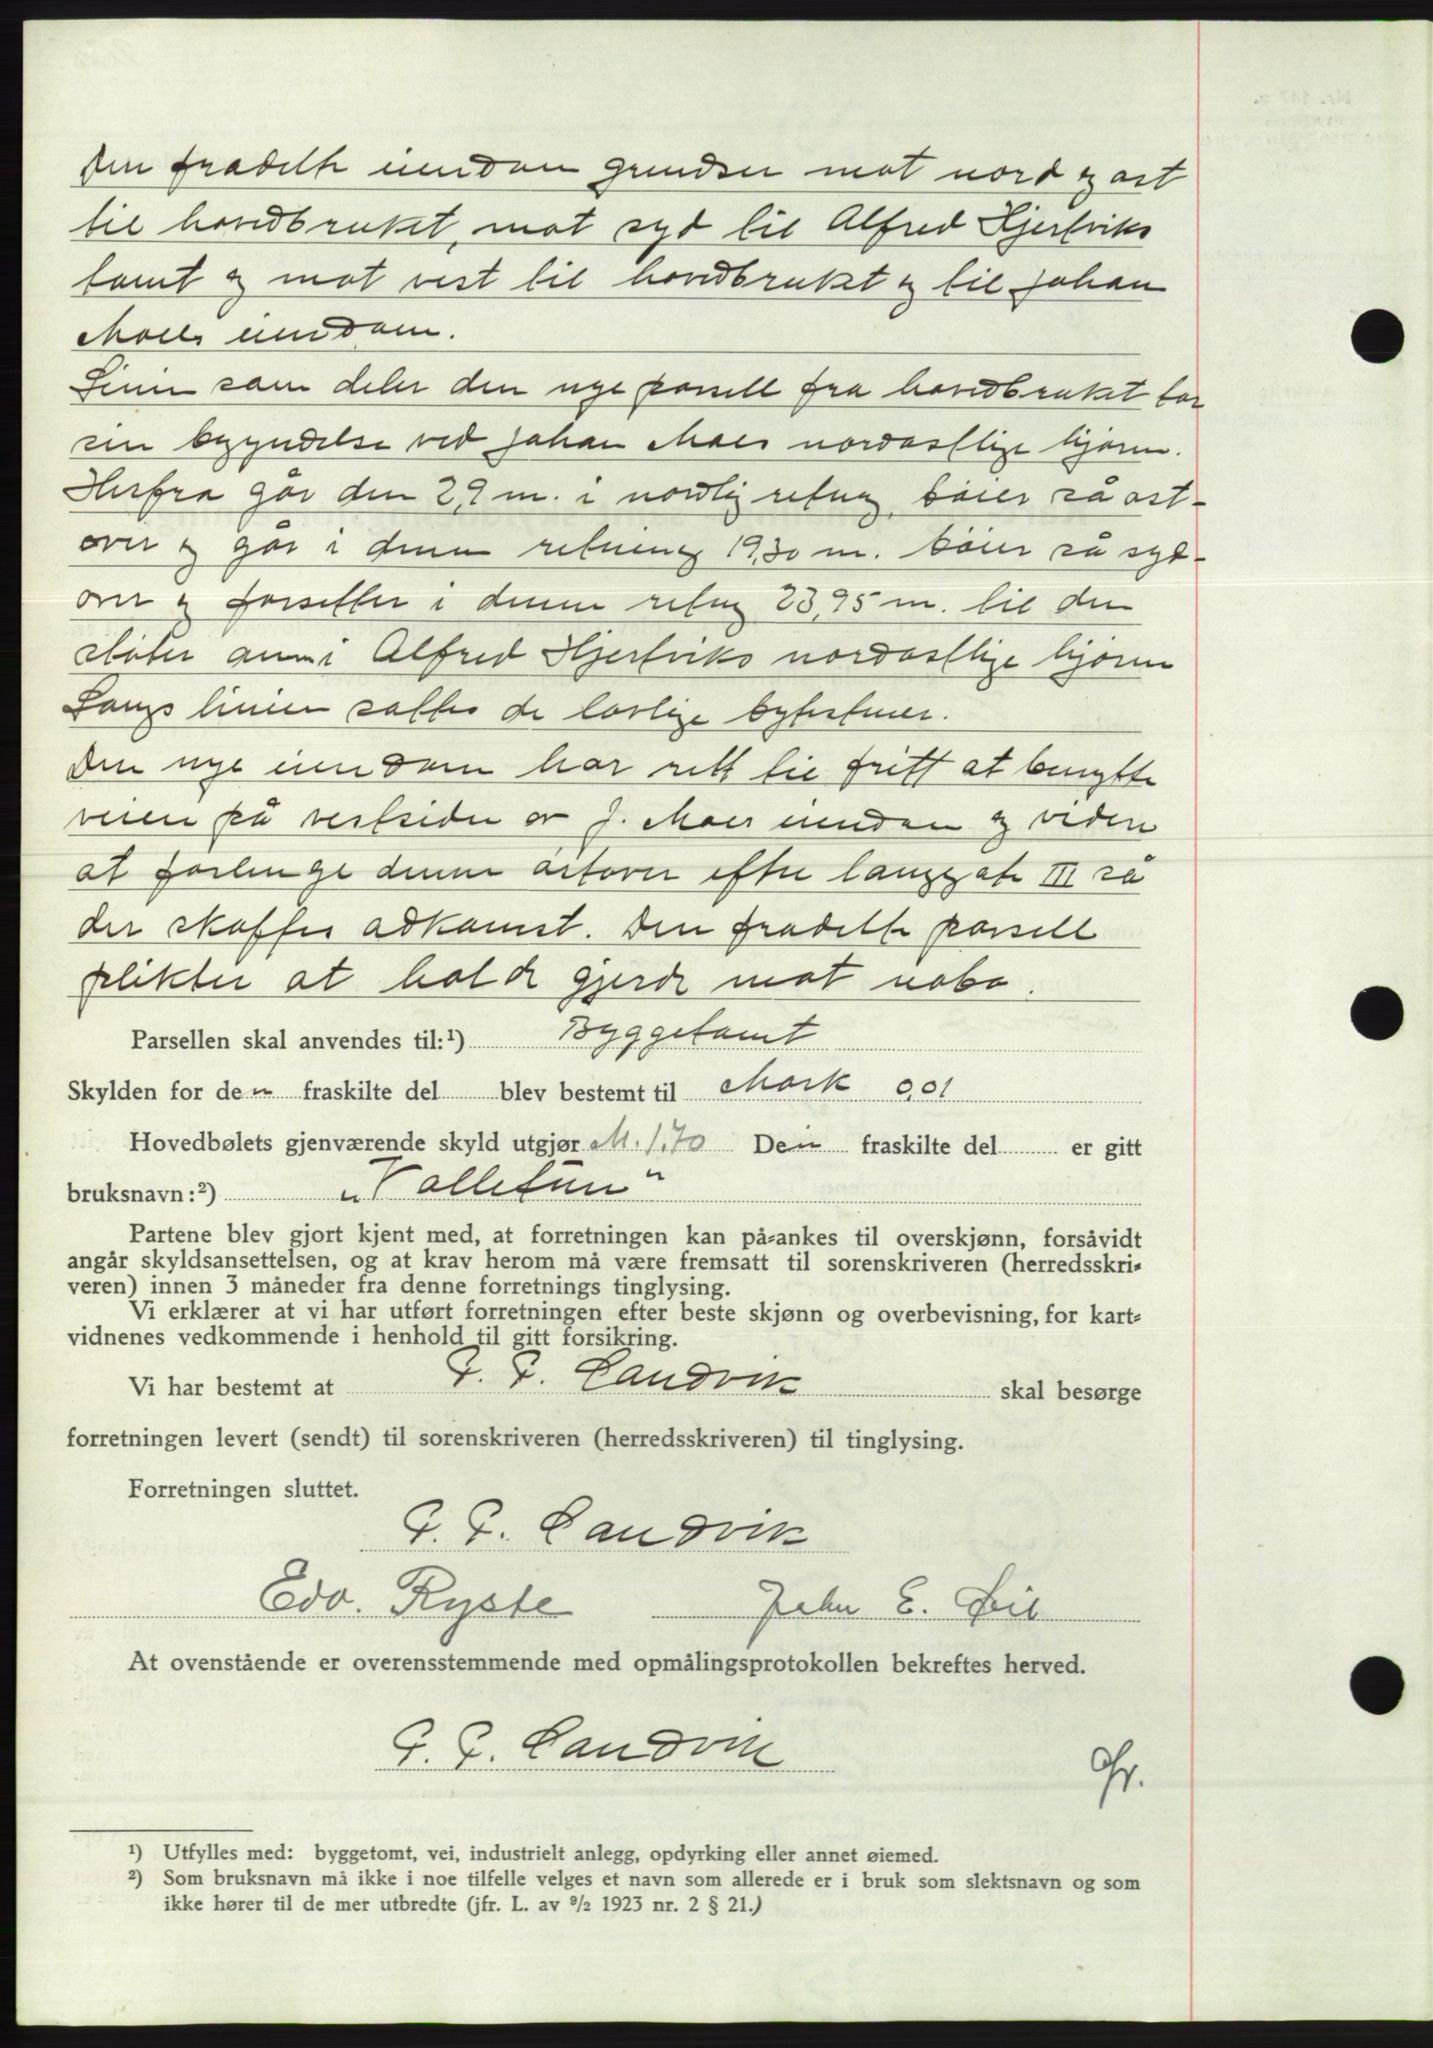 Den fradelte eiendom grendser mot nord og øst
til hovedbruket, mot syd til Alfred Hjertviks
tomt og mot vest til hovedbruket og til Johan
Moes eiendom.
Linien som deler den nye parsell fra hovedbruket tar
sin begyndelse ved Johan Moes nordøstlige hjørne.
Herfra går den 2,9 m. i nordlig retning, bøier så øst-
over og går i denne retning 19,30 m. bøier så syd-
over og forsetter i denne retng 23,95 m. til den
støter an i Alfred Hjertviks nordøstlige hjørne
Langs linien sattes de lovlige bytestener.
Den nye eiendom har rett til fritt at benytte
veien på vestsiden av J. Moes eiendom og videre
at forlenge denne østover efter langgate III så
der skaffes adkomst. Den fradelte parsell
plikter at holde gjerde mot nabo.
Parsellen skal anvendes til:¹) Byggetomt
Skylden for den fraskilte del blev bestemt til Mark 0,01
Hovedbølets gjenværende skyld utgjør M. 1.70 Den fraskilte del er gitt
bruksnavn:²) „Valletun"
Partene blev gjort kjent med, at forretningen kan på-ankes til overskjønn, forsåvidt
angår skyldsansettelsen, og at krav herom må være fremsatt til sorenskriveren (herredsskri-
veren) innen 3 måneder fra denne forretnings tinglysing.
Vi erklærer at vi har utført forretningen efter beste skjønn og overbevisning, for kart-
vidnenes vedkommende i henhold til gitt forsikring.
Vi har bestemt at P. P. Sandvik skal besørge
forretningen levert (sendt) til sorenskriveren (herredsskriveren) til tinglysing.
Forretningen sluttet.
P. P. Sandvik
Edv. Ryste John E. Øie
At ovenstående er overensstemmende med opmålingsprotokollen bekreftes herved.
P. P. Sandvik
¹) Utfylles med: byggetomt, vei, industrielt anlegg, opdyrking eller annet øiemed.
²) Som bruksnavn må ikke i noe tilfelle velges et navn som allerede er i bruk som slektsnavn og som
ikke hører til de mer utbredte (jfr. L. av 9/2 1923 nr. 2 § 21.)